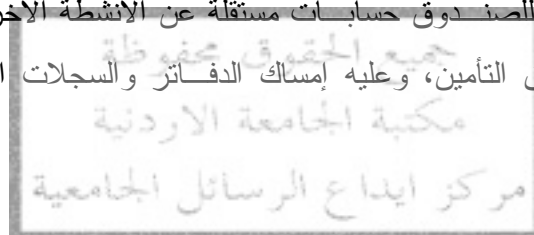 للصنــدوق حسابــات مستقلة عن الأنشطة
جميع الحقوق محفوظة
التأمين، وعليه إمساك الدفــاتر والسجلات
مكتبة الجامعة الاردنية
مركز ايداع الرسائل الجامعية